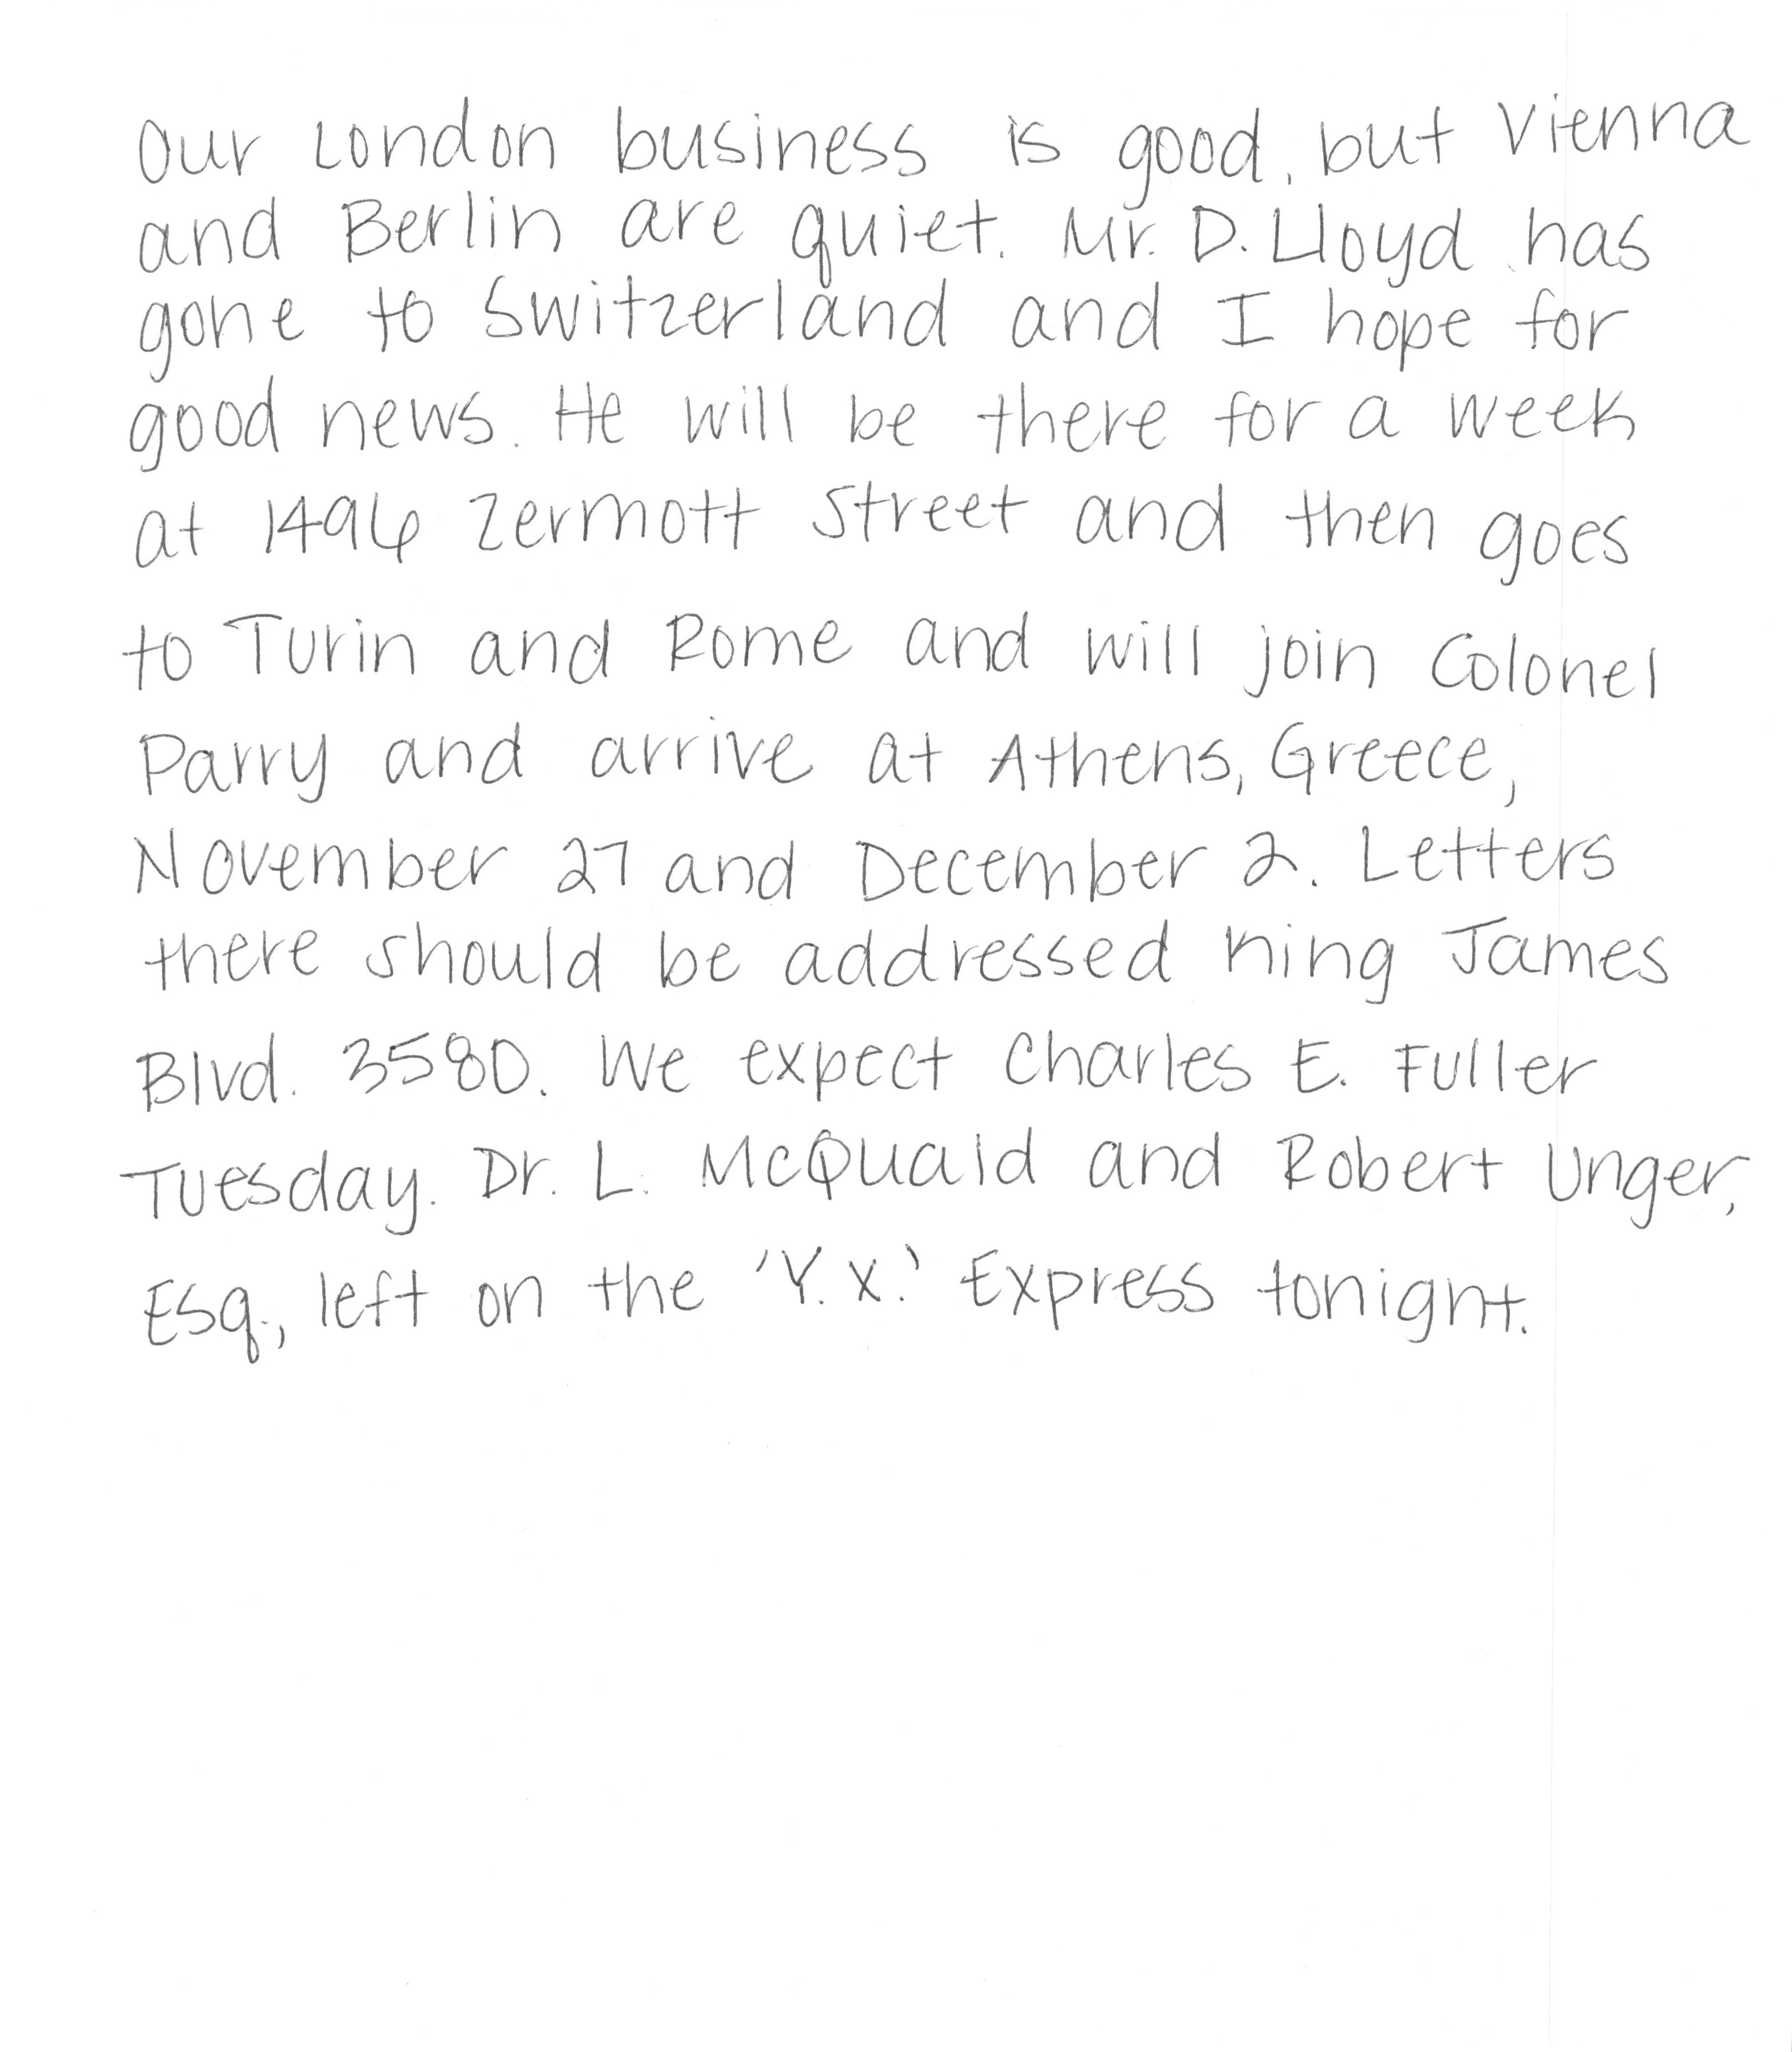 Our London business is good, but Vienna
and Berlin are quiet. Mr. D. Lloyd has
gone to Switzerland and I hope for
good news. He will be there for a week
at 1496 Zermott Street and then goes
to Turin and Rome and will join Colonel
Parry and arrive at Athens, Greece,
November 27 and December 2. Letters
there should be addressed King James
Blvd. 3580. We expect Charles E. Fuller
Tuesday. Dr. L. McQuaid and Robert Unger,
Esq., left on the 'Y.X.' Express tonight.